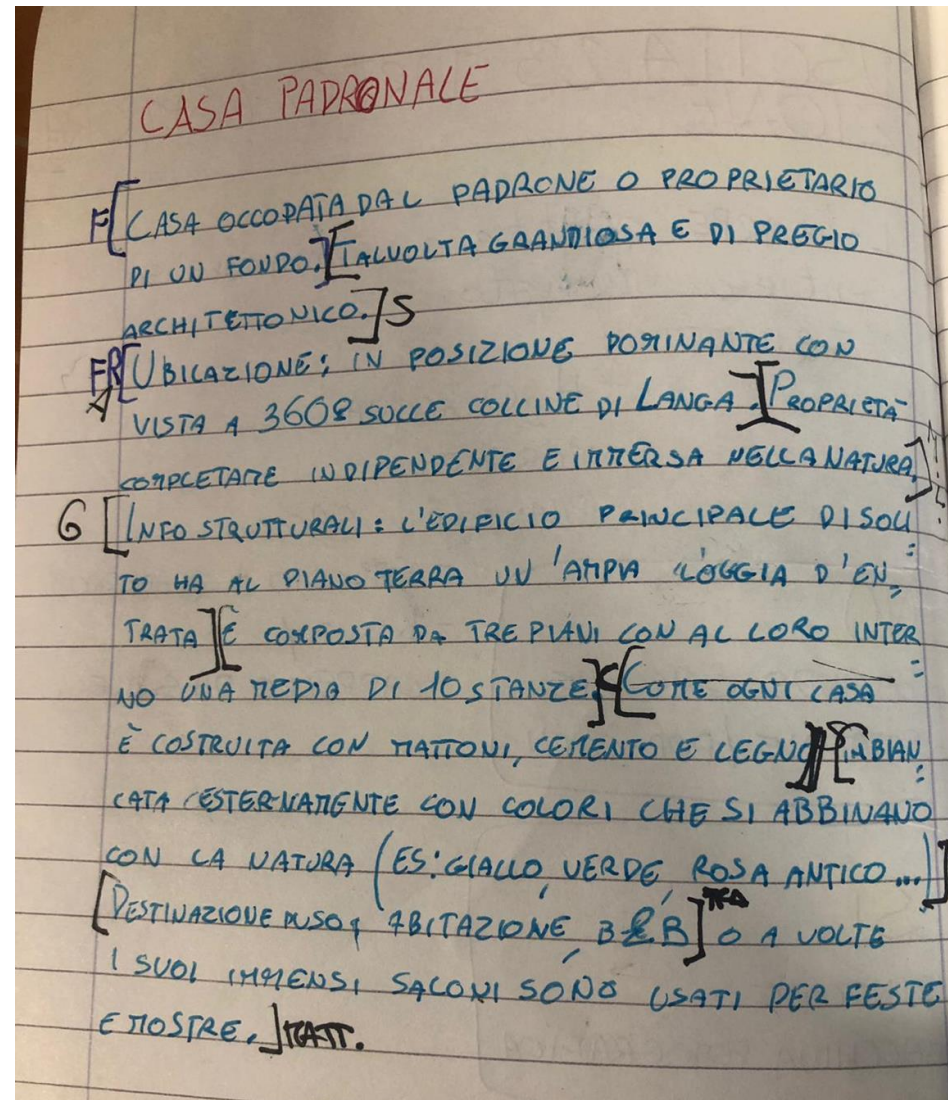 CASA PADRONALE
F[CASA OCCOPATA DAL PADRONE O PROPRIETARIO
DI UN FONDO.][TALVOLTA GRANDIOSA E DI PREGIO
ARCHITETTONICO.]S
FRA[UBICAZIONE: IN POSIZIONE DOMINANTE CON
VISTA A 360° SULLE COLLINE DI LANGA.][PROPRIETÀ
COMPLETAME INDIPENDENTE E IMMERSA NELLA NATURA.]
G[INFO STRUTTURALI: L'EDIFICIO PRINCIPALE DI SOLI
TO HA AL PIANO TERRA UN'AMPIA LOGGIA D'EN
TRATA][È COMPOSTA DA TRE PIANI CON AL LORO INTER
NO UNA MEDIA DI 10 STANZE.][COME OGNI CASA
È COSTRUITA CON MATTONI, CEMENTO E LEGNO][IMBIAN
CATA ESTERNAMENTE CON COLORI CHE SI ABBINANO
CON LA NATURA (ES: GIALLO, VERDE, ROSA ANTICO...)]
[DESTINAZIONE D'USO: ABITAZIONE, B&B] O A VOLTE
I SUOI IMMENSI SALONI SONO USATI PER FESTE
E MOSTRE.]MATT.